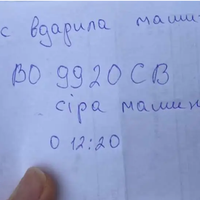 с вдарила маши
ВО 9920 СВ
сіра машин
О 12:20